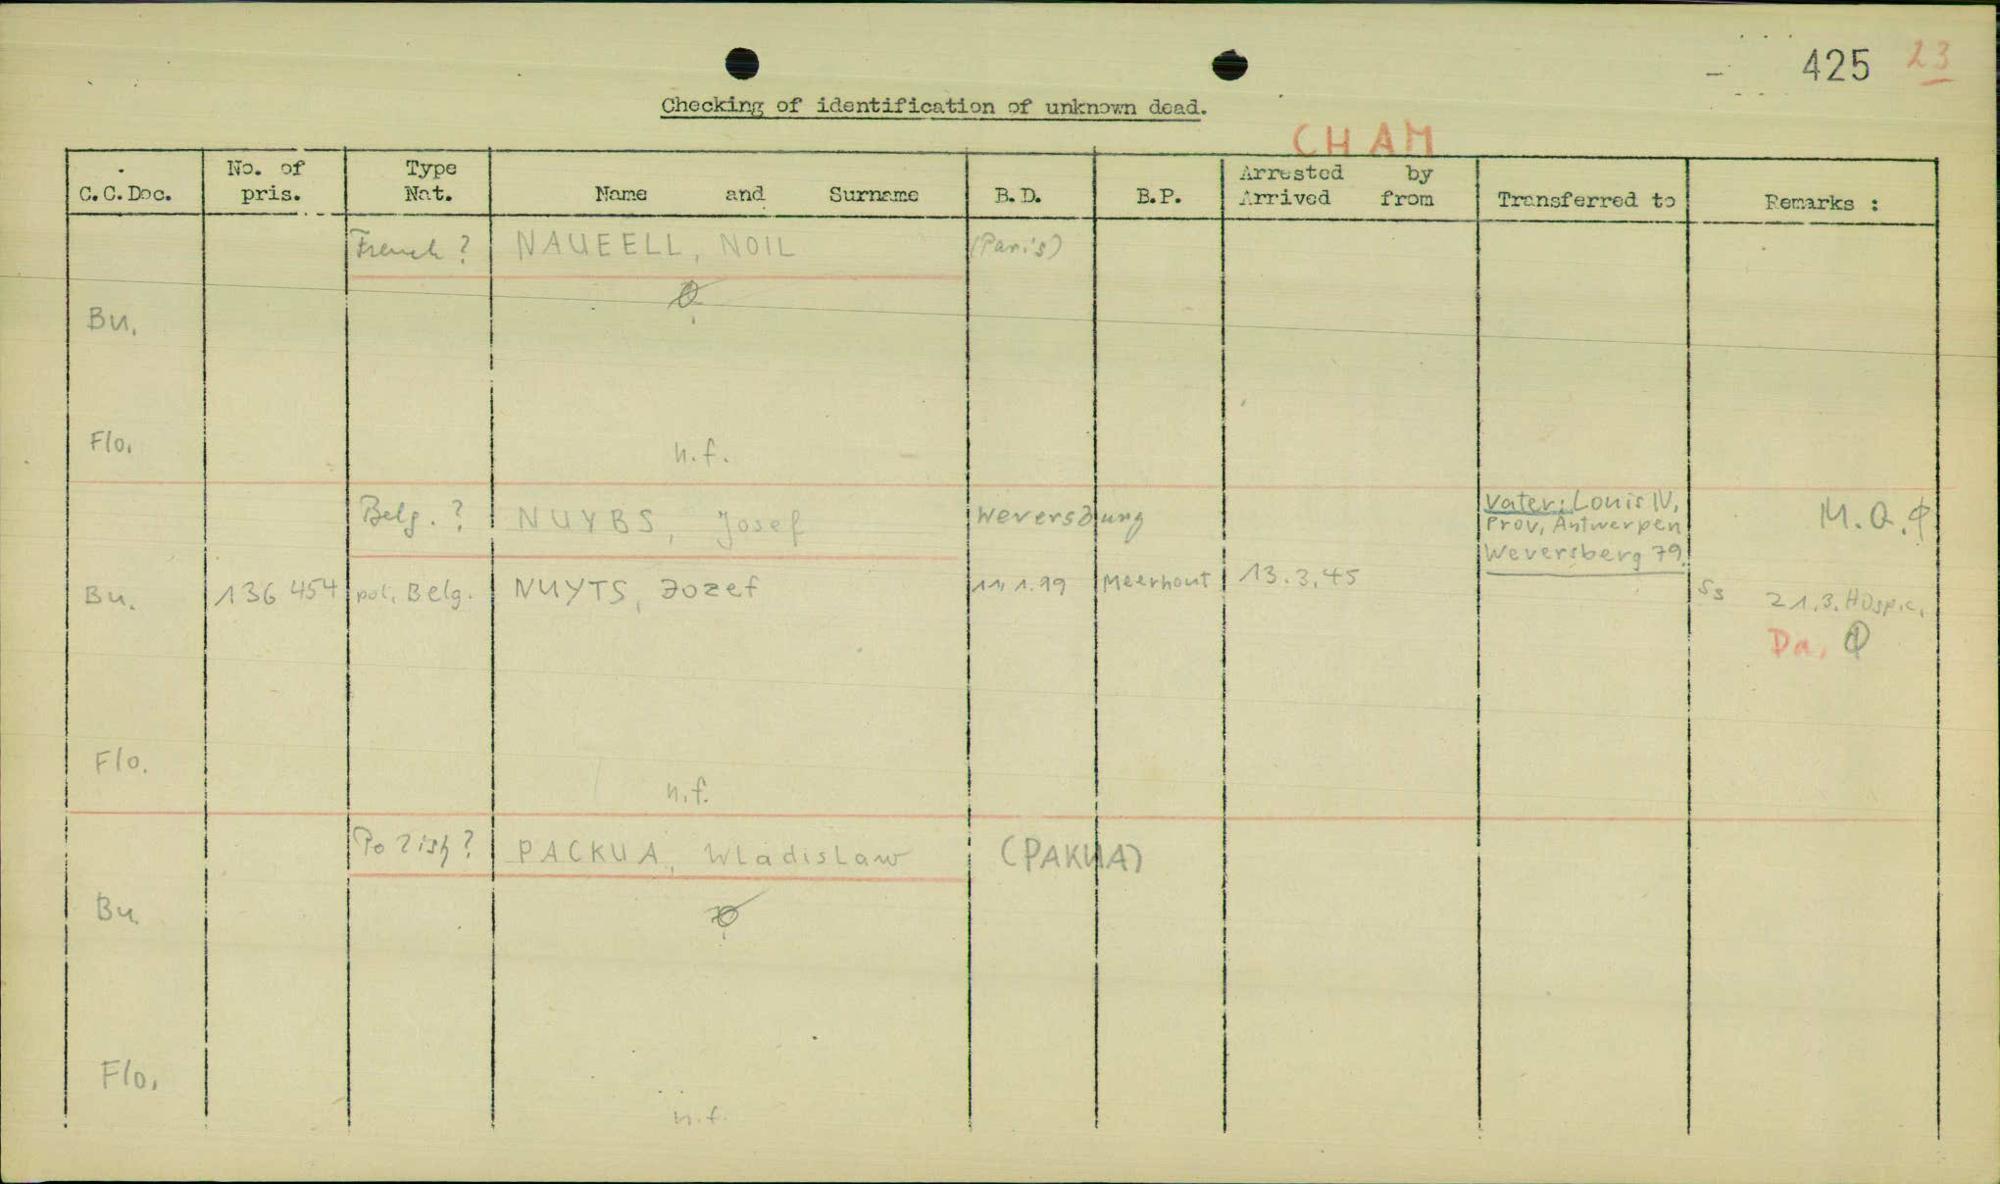 425 23
Checking of identification of unknown dead.
CHAM
C.C.Doc. No. of pris. Type Nat. Name and Surname B.D. B.P. Arrested by Arrived from Transferred to Remarks :
French ? NAUEELL, NOIL (Paris)
Bu.
Flo. n.f.
Belg. ? NUYBS, Josef Vater: Louis N, M.Q.
Prov, Antwerpen
Weversberg 79
Bu. 136 454 pol. Belg. NUYTS, Jozef Meerhout 13.3.45 21.3. Hospic.
Da.
Flo. n.f.
Polish? PACKUA, Wladislaw (PAKUA)
Bu
Flo. n.f.